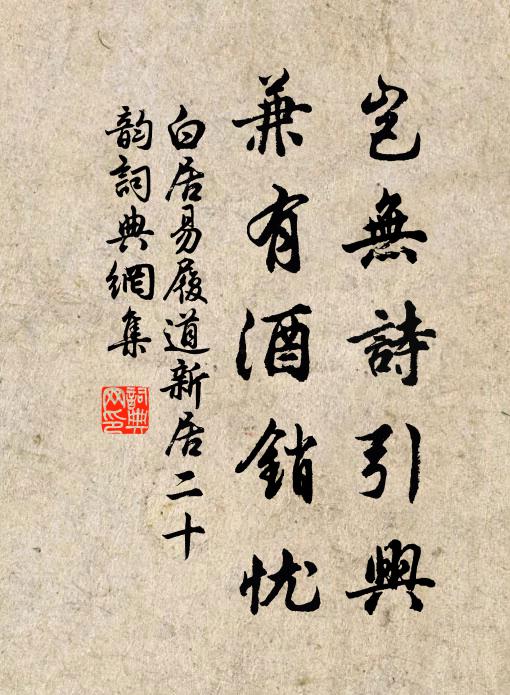 岂無詩引興
兼有酒銷忧
白居易履道新居二十
韵詞典網集
詞典
网印